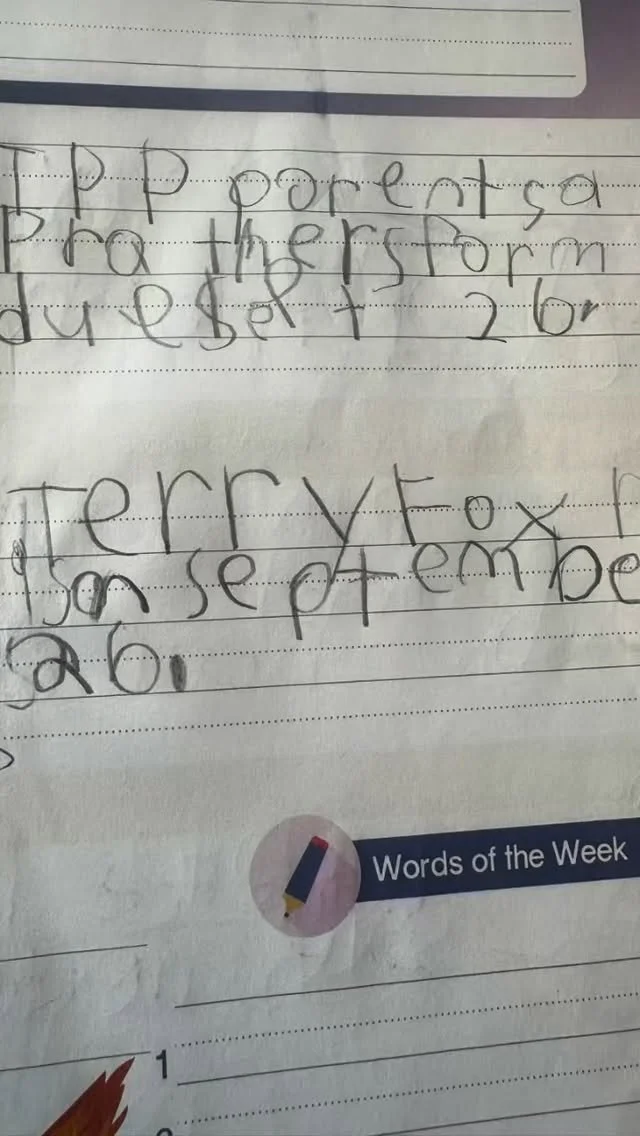 IPP parents a
Pra thers form
due Sept 26.
Terry Fox r
is on septembe
26.
Words of the Week
1